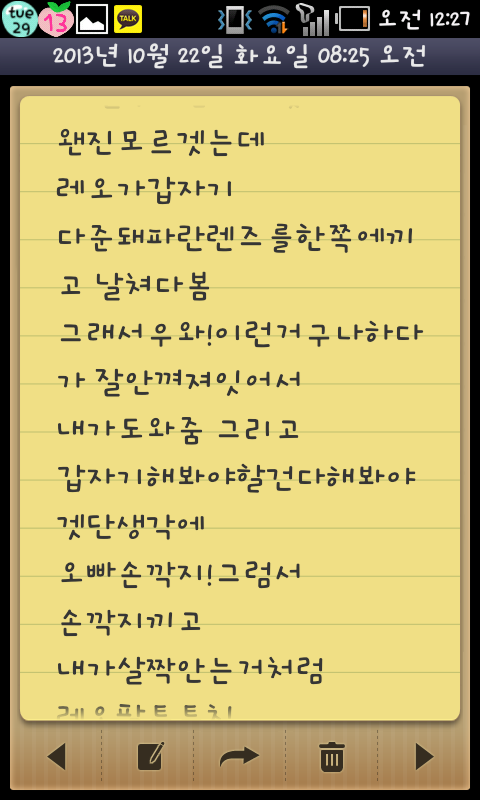 tue
29
13
TALK
오전 12:27
2013년 10월 22일 화요일 08:25 오전
왠진모르겟는데
레오가갑자기
다준돼파란렌즈 를한쪽에끼
고 날쳐다봄
그래서 우와!이런거구나하다
가 잘안껴져잇어서
내가도와줌 그리고
갑자기해봐야할건다해봐야
겟단생각에
오빠손깍지!!그럼서
손깍지끼고
내가살짝안는거처럼